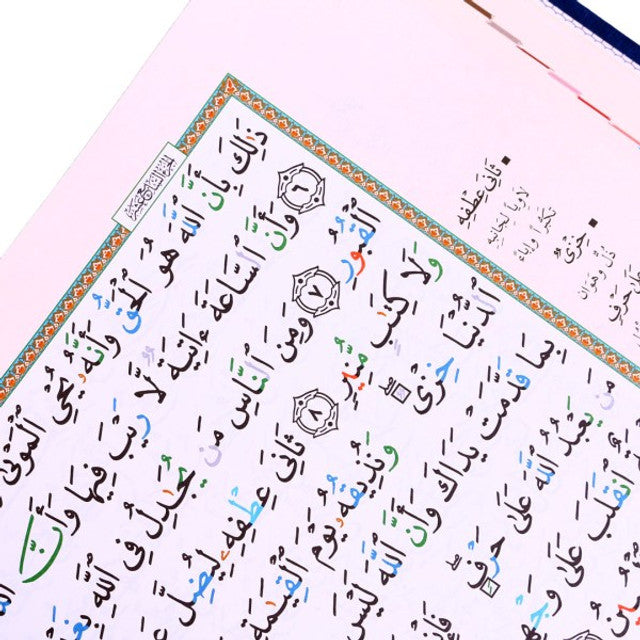 ذَٰلِكَ بِأَنَّ ٱللَّهَ هُوَ ٱلْحَقُّ وَأَنَّهُۥ يُحْىِ ٱلْمَوْتَىٰ
٦ وَأَنَّ ٱلسَّاعَةَ ءَاتِيَةٌ لَّا رَيْبَ فِيهَا وَأَنَّ ٱللَّهَ
ٱلْقُبُورِ ٧ وَمِنَ ٱلنَّاسِ مَن يُجَٰدِلُ فِى ٱللَّهِ بِغَيْرِ
وَلَا كِتَٰبٍ مُّنِيرٍ ٨ ثَانِىَ عِطْفِهِۦ لِيُضِلَّ
ٱلدُّنْيَا خِزْىٌ وَنُذِيقُهُۥ يَوْمَ ٱلْقِيَٰمَةِ
بِمَا قَدَّمَتْ يَدَاكَ وَأَنَّ ٱللَّهَ لَيْسَ
مَن يَعْبُدُ ٱللَّهَ عَلَىٰ حَرْفٍ فَإِنْ
ٱنقَلَبَ عَلَىٰ وَجْهِهِۦ
ثَانِىَ عِطْفِهِ
لاويا لجانبه
تكبرا وإباء
خِزْىٌ
ذل وهوان